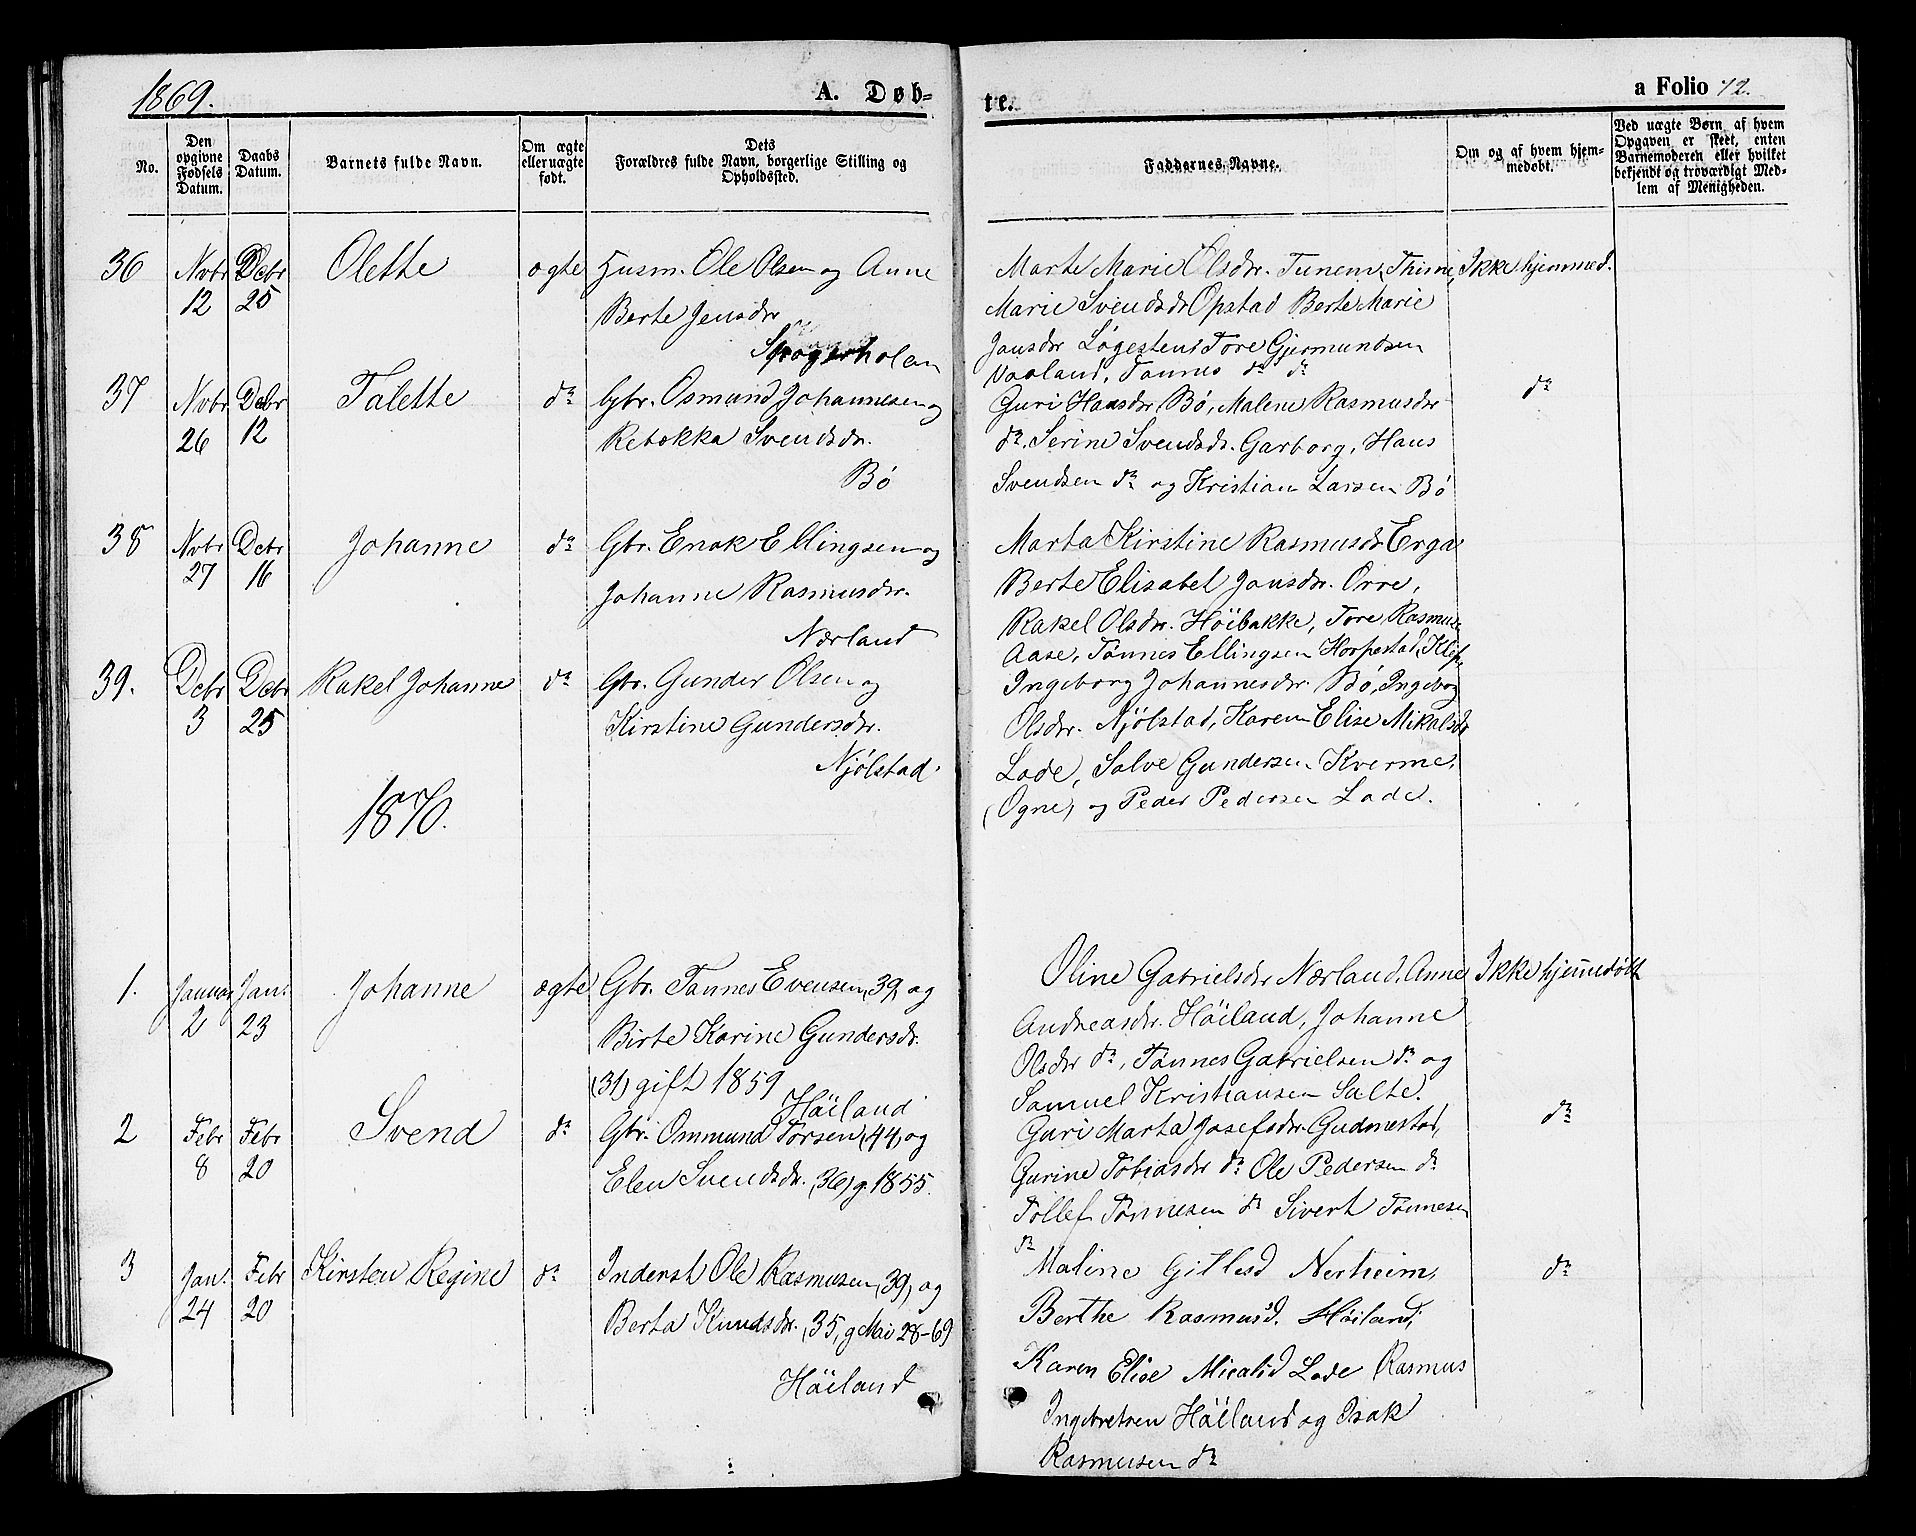 1869.
A. Døb-
te.
a Folio 12.
No.
Den opgivne Fødsels Datum.
Daabs Datum.
Barnets fulde Navn.
Om ægte eller uægte født.
Dets Forældres fulde Navn, borgerlige Stilling og Opholdssted.
Faddernes Navne.
Om og af hvem hjemmedøbt.
Ved uægte Børn af hvem Opgaven er skeet, enten Barnemoderen eller hvilket bekjendt og troværdigt Medlem af Menigheden.
36
Nvbr 12
Dcbr 25
Olette
ægte
Husm. Ole Olsen og Anne
Berte Jensdr
Marte Marie Olsdr. Tunem, Thime,
Marie Svendsdr Opstad Berte Marie
Jonsdr Løgesteni Tore Gjermundsen
Vaaland, Tønnes do do
Ikke hjemmed.
37
Nvbr 26
Dcbr 12
Talette
do
Gbr. Osmund Johannesen og
Rebekka Svendsdr.
Bø
Guri Hansdr Bø, Malene Rasmusdr
do, Serine Svendsdr. Garborg, Hans
Svendsen do og Kristian Larsen Bø
do
38
Nvbr 27
Dcbr 16
Johanne
do
Gbr. Enok Ellingsen og
Johanne Rasmusdr.
Nærland
Marta Kirstine Rasmusdr Erga
Berte Elisabet Jonsdr. Orre,
Rakel Olsdr. Höibakke, Tore Rasmusen
Aase, Tønnes Ellingsen Horpestad, Klep
39.
Dcbr 3
Dcbr 25
Rakel Johanne
do
Gbr. Gunder Olsen og
Kirstine Gundersdr.
Njölstad.
Ingeborg Johannesdr. Bø, Ingeborg
Olsdr. Njölstad, Karen Elise Mikalsdr
Lode, Salve Gundersen Kverme,
(Ogne) og Peder Pedersen Lode.
1870.
1.
Januar 2
Jan. 23
Johanne
ægte
Gbr. Tønnes Evensen (39) og
Birte Karine Gundersdr.
(31) gift 1859
Höiland
Oline Gabrielsdr Nærland, Anne
Andreasdr. Höiland, Johanne
Olsdr do, Tønnes Gabrielsen do og
Samuel Kristiansen Salte.
Ikke hjemmedöbt
2
Febr 8
Febr 20
Svend
do
Gbr. Ommund Torsen (44) og
Elen Svendsdr. (36) g. 1855.
Guri Marta Josefsdr. Gudmestad,
Gurine Tobiasdr do Ole Pedersen do
Tollef Tønnesen do Sivert Tønnesen
do
do
3
Jan. 24
Febr 20
Kirsten Regine
do
Inderst Ole Rasmusen (39) og
Berta Knudsdr. (35, g Mai 28-69
Höiland
Maline Gitlesd Nerheim,
Berthe Rasmusd. Höiland,
Karen Elise Micalsd Lode Rasmus
Ingebretsen Höiland og Isak
Rasmusen do
do